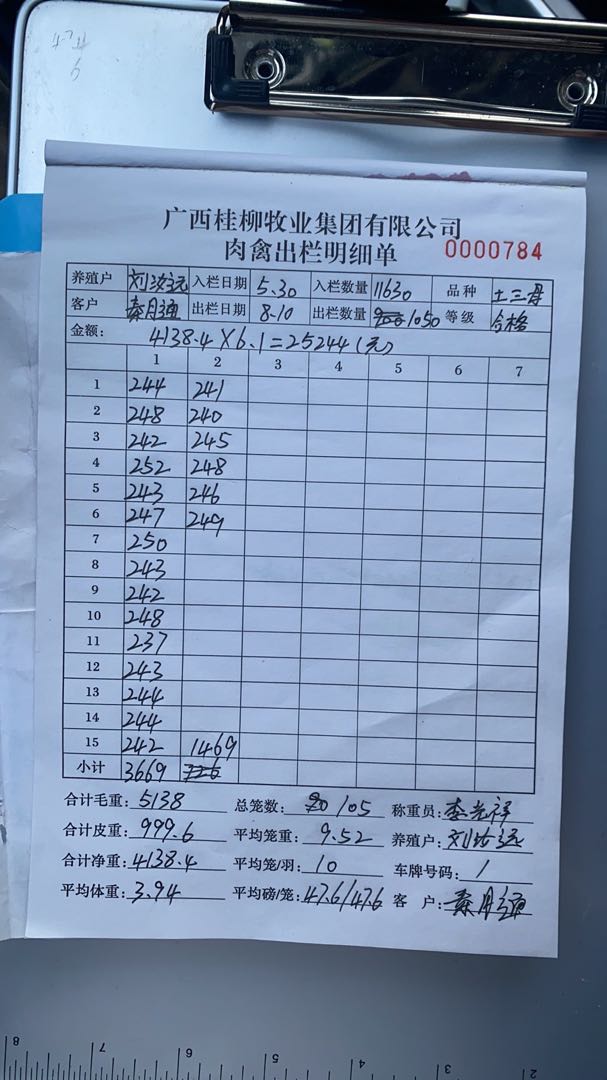 广西桂柳牧业集团有限公司
肉禽出栏明细单 0000784
养殖户 刘汝远 入栏日期 5.30 入栏数量 11630 品种 土三母
客户 秦月通 出栏日期 8.10 出栏数量 1050 等级 合格
金额: 4138.4×6.1=25244(元)
1 2 3 4 5 6 7
1 244 241
2 248 240
3 242 245
4 252 248
5 243 246
6 247 249
7 250
8 243
9 242
10 248
11 237
12 243
13 244
14 244
15 242 1469
小计 3669
合计毛重: 5138 总笼数: 105 称重员: 李光祥
合计皮重: 999.6 平均笼重: 9.52 养殖户: 刘汝远
合计净重: 4138.4 平均笼/羽: 10 车牌号码: /
平均体重: 3.94 平均磅/笼: 47.6/47.6 客 户: 秦月通
8 7 6 5 4 3 2